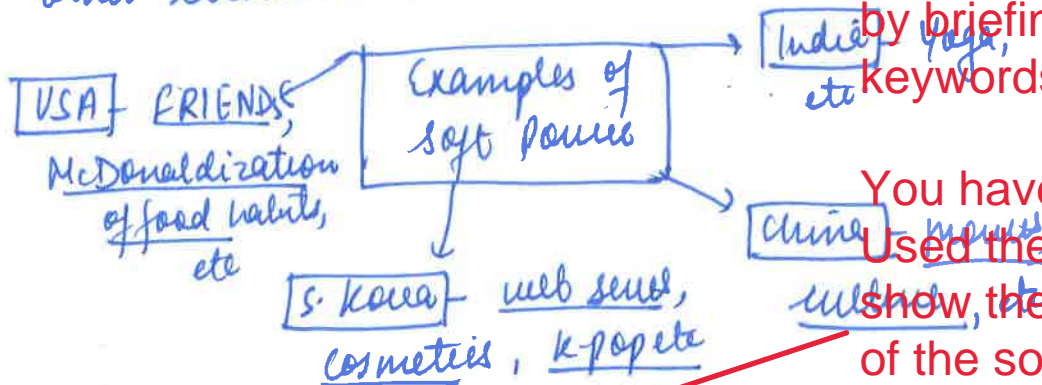 USA - FRIENDS,
McDonaldization
of food habits,
etc
Examples of
Soft Power
India - Yoga,
etc
China -
culture, etc
S. Korea - web series,
cosmetics, k-pop etc
by briefin
keywords
You have
Used the
show, the
of the so